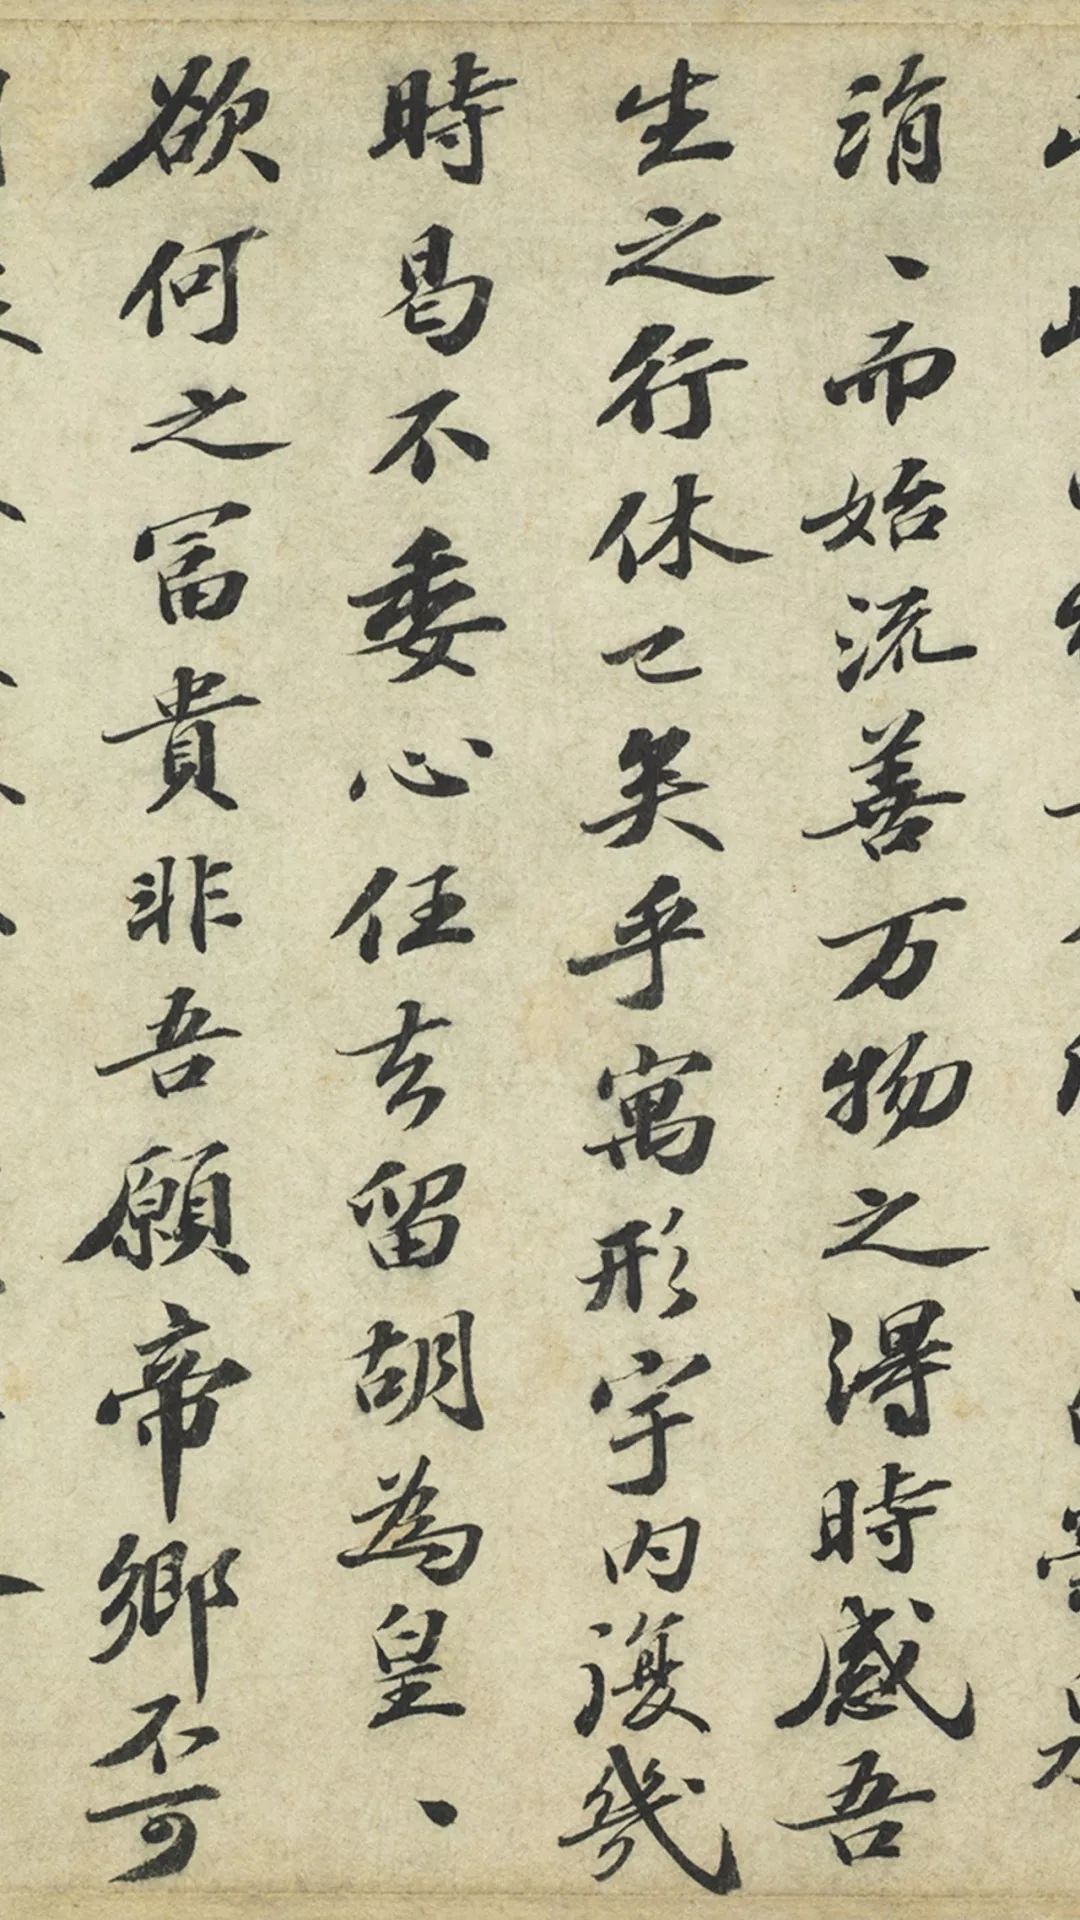 涓、而始流善万物之得時感吾
生之行休已矣乎寓形宇内復幾
時曷不委心任去留胡為皇、
欲何之冨貴非吾願帝鄉不可